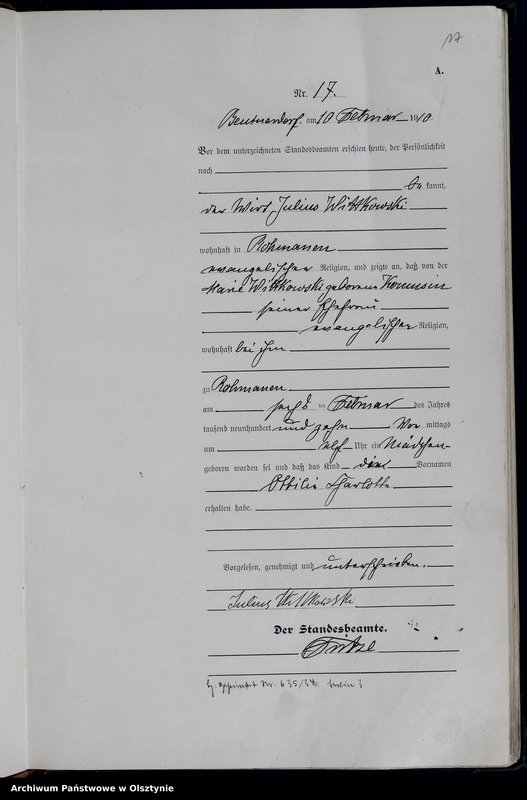 17
A.
Nr. 17.
Beutnerdorf, am 10 Februar 1910.
Vor dem unterzeichneten Standesbeamten erschien heute, der Persönlichkeit
nach
be kannt,
der Wirt Julius Wittkowski
wohnhaft in Rohmanen
evangelischer Religion, und zeigte an, daß von der
Marie Wittkowski geborenen
seiner Ehefrau
evangelischer Religion,
wohnhaft bei ihm
zu Rohmanen
am sechs ten Februar des Jahres
tausend neunhundert und zehn Vor mittags
um elf Uhr ein Mädchen
geboren worden sei und daß das Kind die Vornamen
Ottilie Charlotte
erhalten habe.
Vorgelesen, genehmigt und unterschrieben.
Julius Wittkowski
Der Standesbeamte.
Nr. 635/34 Berlin
Archiwum Państwowe w Olsztynie